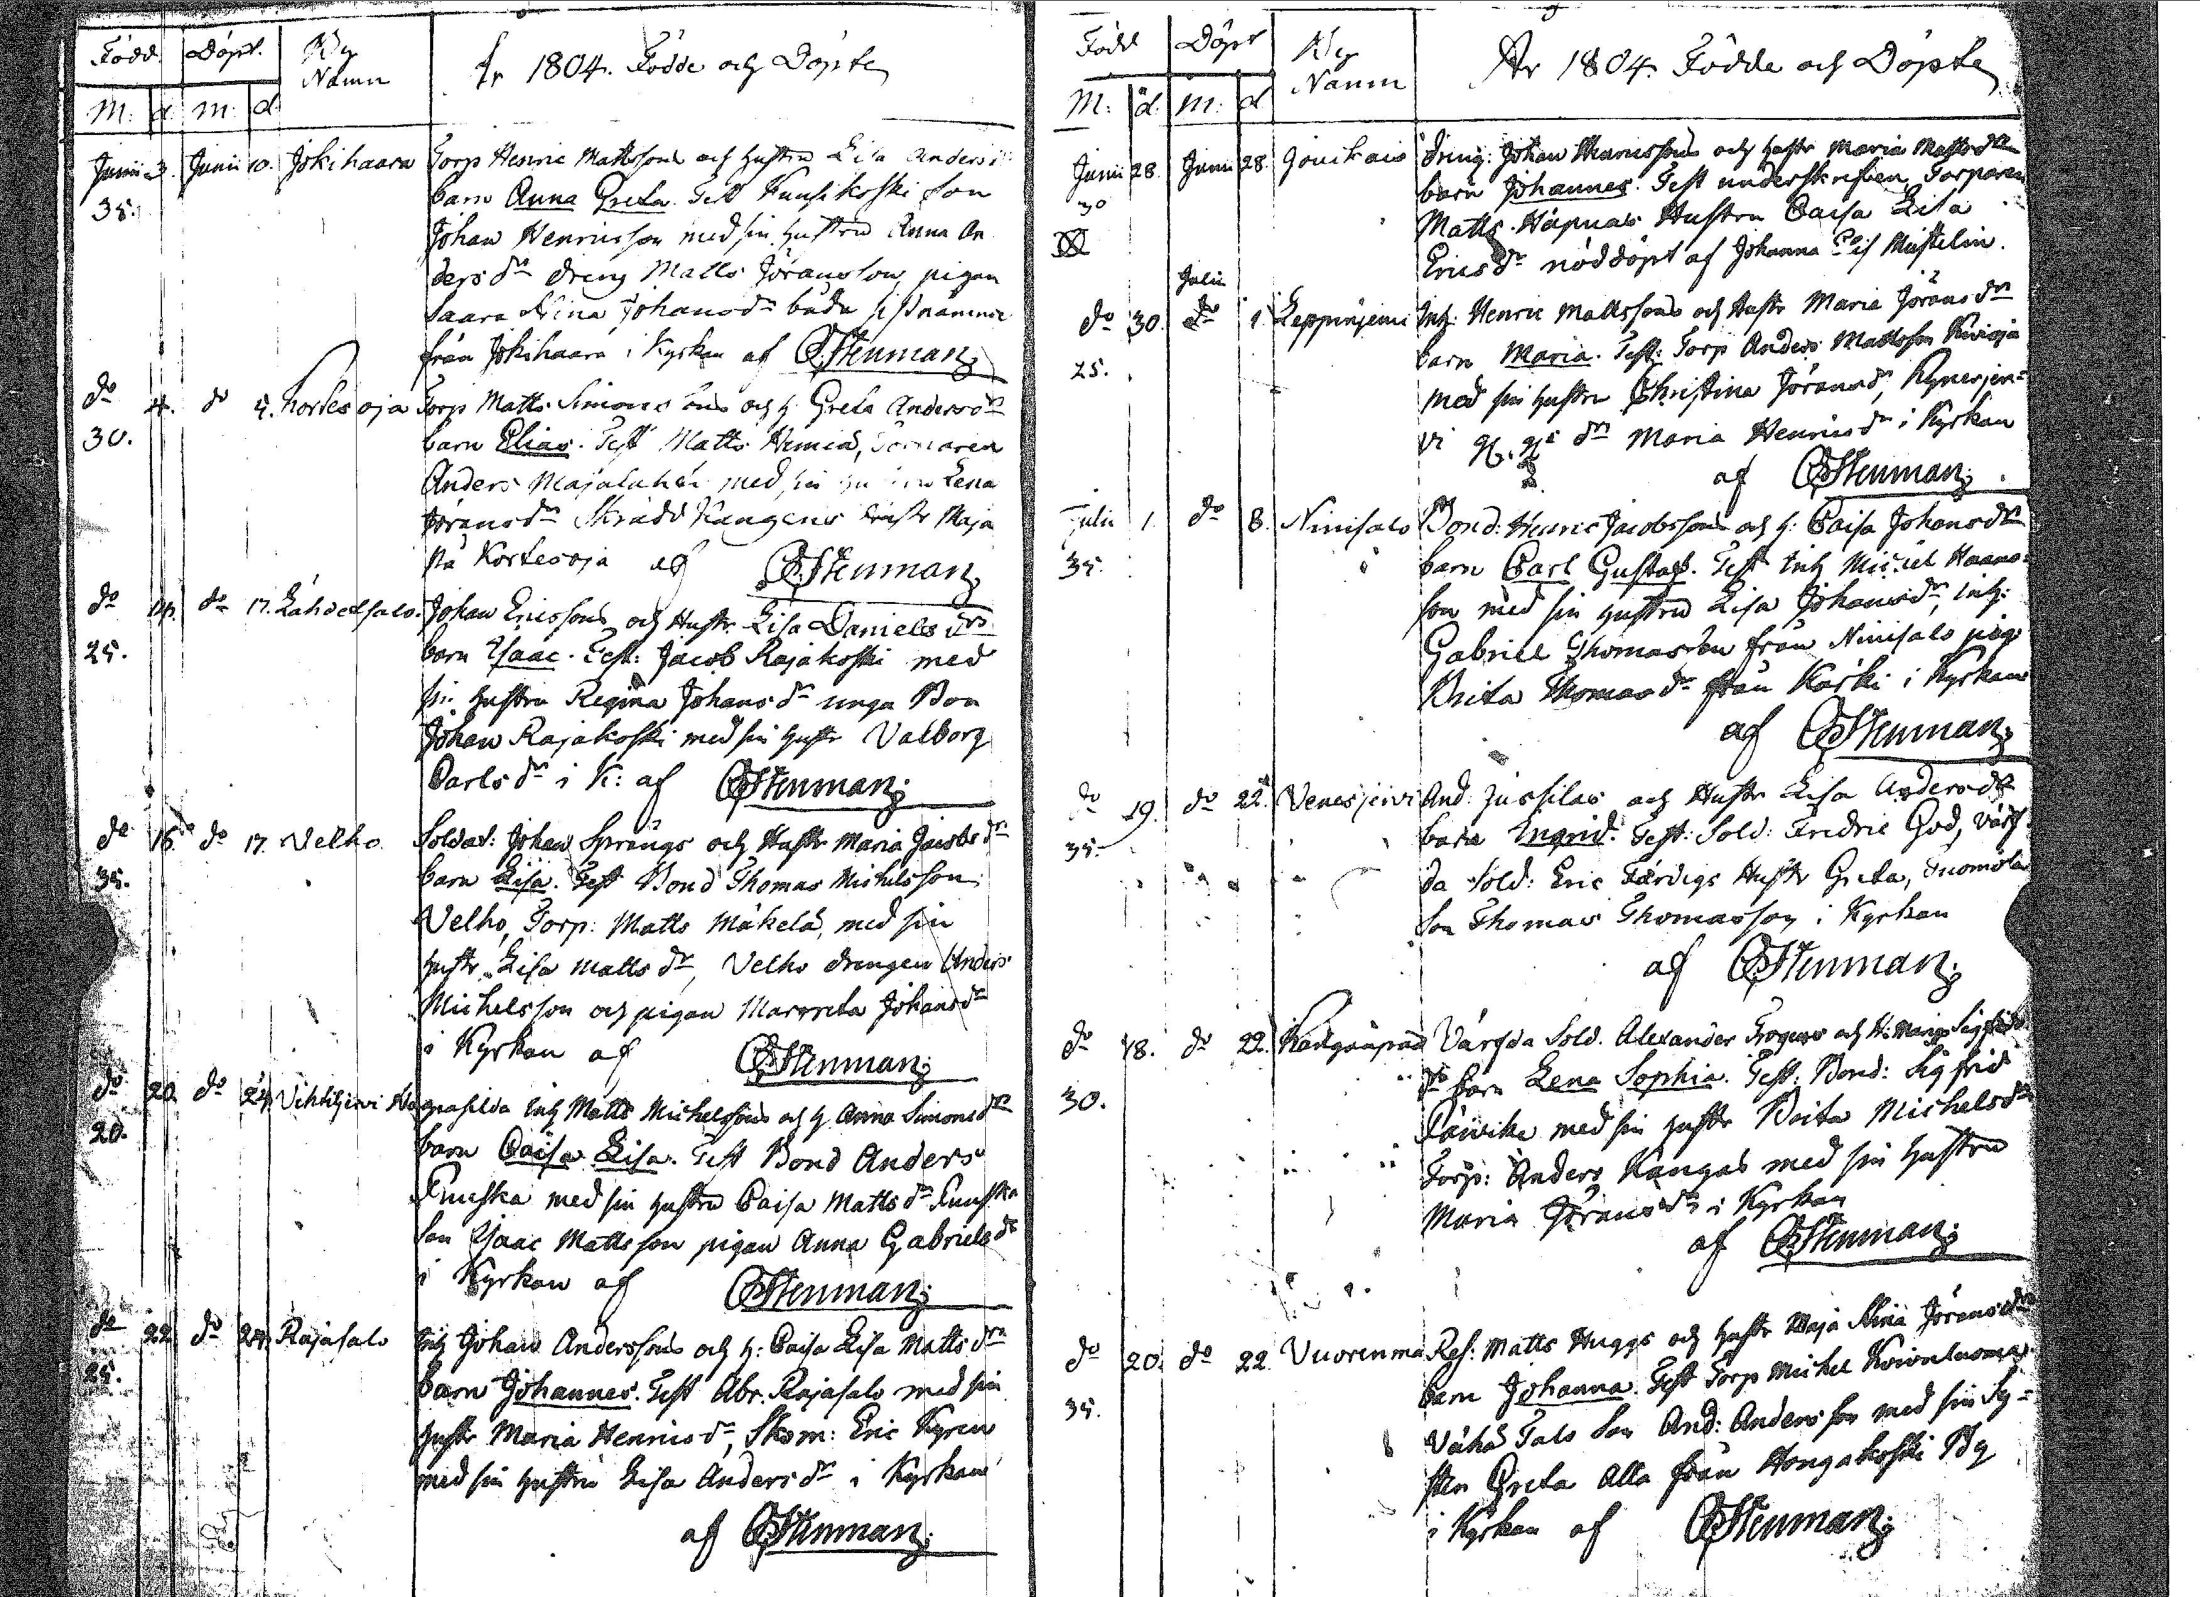 Född Döpt. By Namn År 1804. Födde och Döpte
M: d. m: d
Junii 3. Junii 10. Jokihaara Torp Henric Mattssons och hustru Lisa Anders
35. barn Anna Greta. Test Kuusikoski Son
Johan Henricsson med sin hustru Anna An
ders dr dreng Matts Jöransson, pigan
Saara Stina Johans dr båda sistnämnde
från Jokihaara i Kyrkan af CStenman
do 4. do 4. Kortesoja Torp Matts Simons sons och h Greta Anders dr
30. barn Elias. Test Matts Hemiä, Torparen
Anders Majaluhd med sin Lena
Jörans dr Skrädd Kangens hustr Maja
på Kortesoja af CStenman
do do 17. Lähdesalo. Johan Ericssons och Hustr Lisa Daniels drs
25. barn Isaac. Test: Jacob Rajakoski med
sin hustru Regina Johans dr unga Bon
Johan Rajakoski med sin hustr Valborg
Carls dr i K: af CStenman
do 16. do 17. Velho. Soldat: Johan Sprängs och Hustr Maria Jacobs dr
35. barn Lisa. Test Bond Thomas Michelsson
Velho, Torp: Matts Mäkelä, med sin
hustr Lisa Matts dr, Velho drengen Anders
Michelsson och pigan Margreta Johans dr
i Kyrkan af CStenman
do 20. do 24. Vihtijervi Inh Matts Michelssons och h Anna Simons dr
20. barn Caisa Lisa. Test Bond Anders
Ruuska med sin hustru Caisa Matts dr Ruuska
Son Isaac Mattsson pigan Anna Gabriels dr
i Kyrkan af CStenman
do 22. do 24. Rajasalo Inh Johan Anderssons och h: Caisa Lisa Matts drs
25. barn Johannes. Test Abr. Rajasalo med sin
hustr Maria Henrics dr, Skom: Eric Kyren
med sin hustru Lisa Anders dr i Kyrkan
af CStenman
Född Döpt By Namn År 1804. Födde och Döpte
M: d. m: d
Junii 28. Junii 28. Dreng: Johan Henricssons och hustr Maria Matts dr
30 barn Johannes. Test underskrifven Torparen
Matts Hapuas Hustru Caisa Lisa
Erics dr nöddöpt af Johanna
Julii
do 30. do 1. Leppäjervi Inh: Henric Mattssons och Hustr Maria Jörans dr
25. barn Maria. Test: Torp Anders Mattsson
med sin hustru Christina Jörans dr, Kynesjer-
vi dr Maria Henrics dr i Kyrkan
af CStenman
Julii 1. do 8. Ninisalo Bond: Henric Jacobssons och h: Caisa Johans dr
35. barn Carl Gustaf. Test Inh Michel Hans-
son med sin hustru Lisa Johans dr, inh:
Gabriel Thomasson från Ninisalo pig
Brita Thomas dr från Koski i Kyrkan
af CStenman
do 19. do 22. Venesjervi And: Jussilas och Hustr Lisa Anders dr
35. barn Ingrid. Test: Sold: Fredric God, Värf
da Sold: Eric Färdigs Hustr Greta, Tuomola
Son Thomas Thomasson i Kyrkan
af CStenman
do 18. do 22. Kangaspää Värfda Sold. Alexander Trogens och H: Maria Sigfrids
dr barn Lena Sophia. Test: Bond: Sigfrid
30. med sin hustr Brita Michels dr
Torp: Anders Kangas med sin hustru
Maria Jörans dr i Kyrkan
af CStenman
do 20. do 22. Vuorenma Res: Matts Huggs och hustr Maja Stina Jörans drs
35. barn Johanna. Test Torp Michel Koivuluoma
Vähä Talo Son And: Andersson med sin Sy-
ster Greta alla från Hongakoski By
i Kyrkan af CStenman